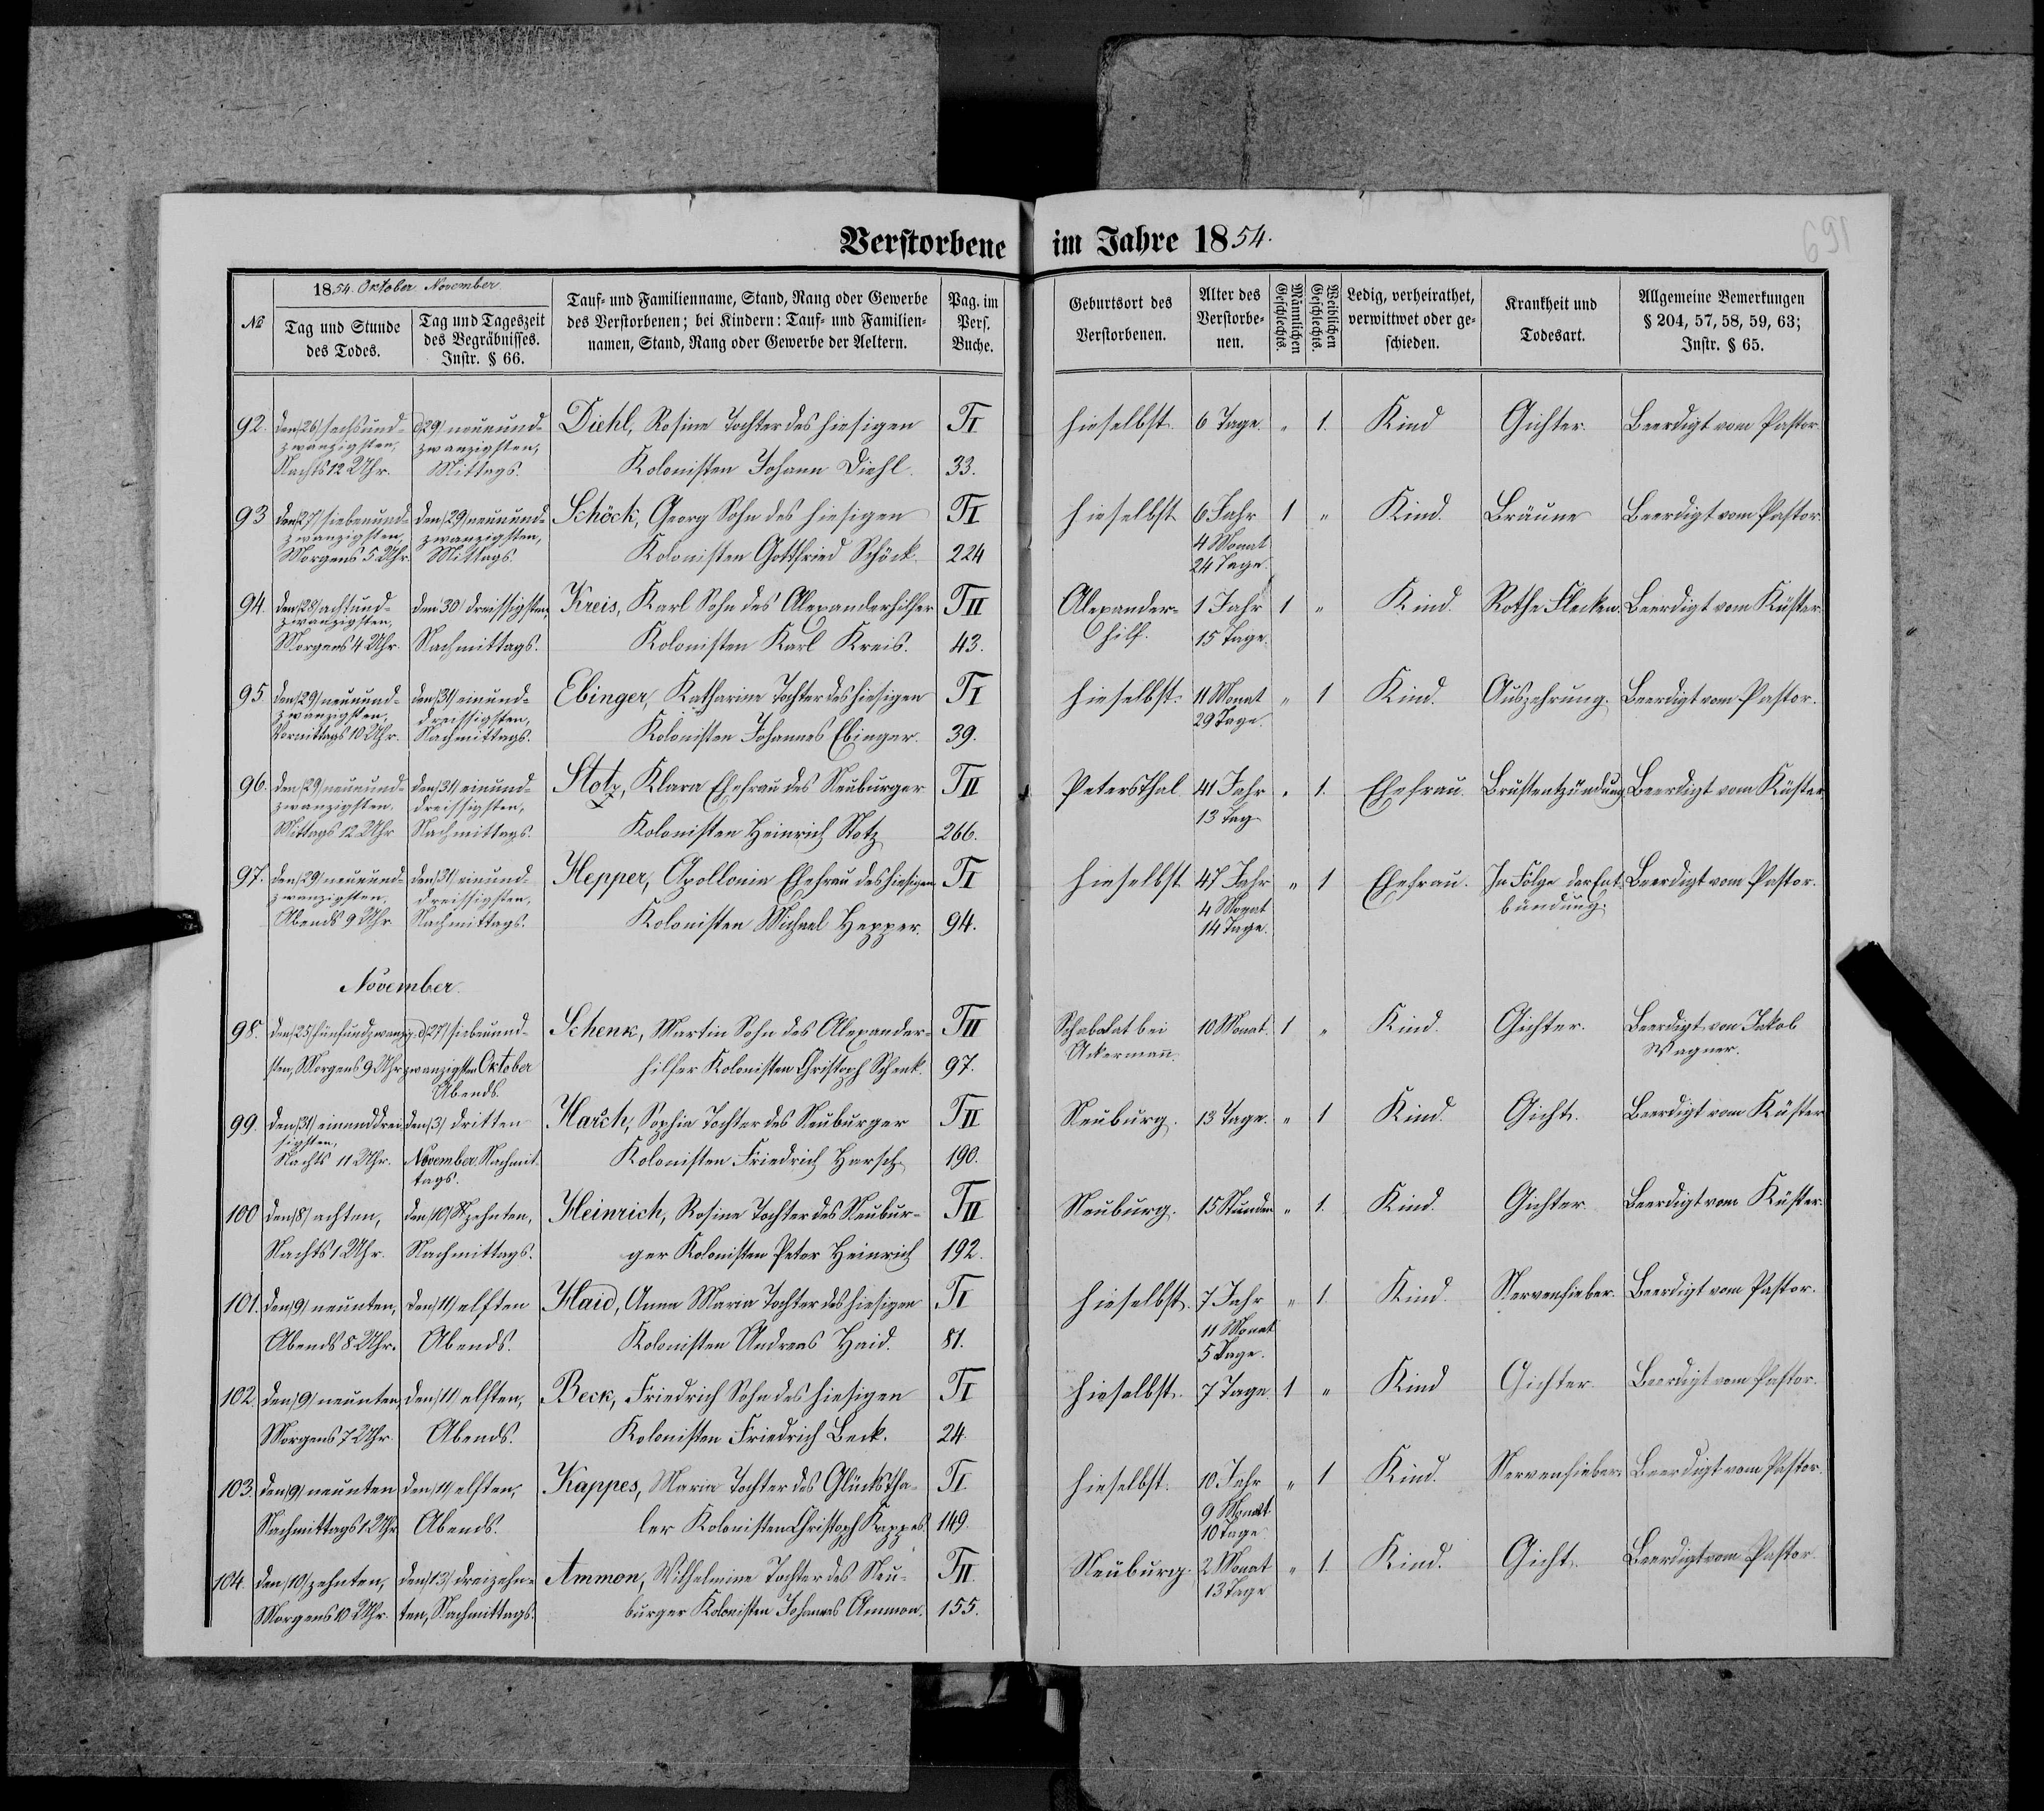 Verstorbene im Jahre 1854.
№
1854. Oktober. November.
Tag und Stunde des Todes.
Tag und Tageszeit des Begräbnisses. Instr. § 66.
Tauf- und Familienname, Stand, Rang oder Gewerbe
des Verstorbenen; bei Kindern: Tauf- und Familien-
namen, Stand, Rang oder Gewerbe der Aeltern.
Pag. im Pers. Buche.
Geburtsort des Verstorbenen.
Alter des Verstorbe-
nen.
Männlichen Geschlechts.
Weiblichen Geschlechts.
Ledig, verheirathet, verwittwet oder ge-
schieden.
Krankheit und Todesart.
Allgemeine Bemerkungen
§ 204, 57, 58, 59, 63;
Instr. § 65.
92. den /26/ sechsund- d /29/ neunund- Diehl, Rosine Tochter des hiesigen TI hieselbst 6 Tage. " 1. Kind Gichter. Beerdigt vom Pastor.
zwanzigsten, zwanzigsten,
Nachts 12 Uhr. Mittags. Kolonisten Johann Diehl. 33.
93 den /27/ siebenund- den /29/ neunund- Schöck, Georg Sohn des hiesigen TI hieselbst 6 Jahr 1 " Kind. Bräune Beerdigt vom Pastor.
zwanzigsten, zwanzigsten, 4 Monat
Morgens 5 Uhr. Mittags. Kolonisten Gottfried Schöck. 224 24 Tage.
94. den /28/ achtund- den 30/ dreissigsten, Kreis, Karl Sohn des Alexanderhilfer TII Alexander- 1 Jahr 1 " Kind. Rothe Flecken. Beerdigt vom Küster.
zwanzigsten,
Morgens 4 Uhr. Nachmittags. Kolonisten Karl Kreis. 43. hilf. 15 Tage.
95. den /29/ neunund- den /31/ einund- Ebinger, Katharine Tochter des hiesigen TI hieselbst. 11 Monat " 1 Kind. Auszehrung. Beerdigt vom Pastor.
zwanzigsten, dreissigsten, 29 Tage.
Vormittags 10 Uhr. Nachmittags. Kolonisten Johannes Ebinger. 39.
96. den /29/ neunund- den /31/ einund- Stotz, Klara Ehefrau des Neuburger TII Petersthal 41 Jahr " 1. Ehefrau Brustentzündung Beerdigt vom Küster
zwanzigsten. dreissigsten, 13 Tag
Mittags 12 Uhr Nachmittags. Kolonisten Heinrich Stotz 266.
97. den /29/ neunund- den /31/ einund- Hepper, Apollonia Ehefrau des hiesigen TI hieselbst 47 Jahr " 1 Ehefrau. In Folge der Ent- Beerdigt vom Pastor.
zwanzigsten, dreissigsten, 4 Monat bindung.
Abends 9 Uhr Nachmittags. Kolonisten Michael Hepper. 94. 14 Tage.
November.
98. den /25/ fünfundzwanzig- d /27/ siebenund- Schenk, Martin Sohn des Alexander- TII bei 10 Monat. 1 " Kind. Gichter. Beerdigt von Jakob
Ackermann. Wagner.
sten, Morgens 9 Uhr zwanzigsten Oktober hilfer Kolonisten Christoph Schenk. 97.
Abends.
99. den /31/ einunddrei- den /3/ dritten Harsch, Sophia Tochter des Neuburger TII Neuburg. 13 Tage. " 1 Kind. Gicht. Beerdigt vom Küster
sigsten,
Nachts 11 Uhr. November. Nachmit- Kolonisten Friedrich Harsch 190.
tags.
100 den /8/ achten, den /10/ zehnten, Heinrich, Rosine Tochter des Neubur- TII Neuburg. 15 Stunden " 1. Kind. Gichter Beerdigt vom Küster.
Nachts 1 Uhr. Nachmittags. ger Kolonisten Peter Heinrich 192.
101. den /9/ neunten, den /11/ elften Haid, Anna Maria Tochter des hiesigen TI hieselbst. 7 Jahr " 1. Kind. Nervenfieber. Beerdigt vom Pastor.
11 Monat
Abends 8 Uhr. Abends. Kolonisten Andreas Haid. 81. 5 Tage.
102. den /9/ neunten, den /11/ elften, Beck, Friedrich Sohn des hiesigen TI hieselbst. 7 Tage. 1 " Kind Gichter. Beerdigt vom Pastor.
Morgens 7 Uhr Abends. Kolonisten Friedrich Beck. 24.
103. den /9/ neunten den /11/ elften, Kappes, Maria Tochter des Glücksthа- TI. hieselbst. 10 Jahr " 1 Kind. Nervenfieber. Beerdigt vom Pastor.
9 Monat
Nachmittags 1 Uhr Abends. ler Kolonisten Christoph Kappes. 149. 10 Tage
104. den /10/ zehnten, den /13/ dreizehn- Ammon, Wilhelmine Tochter des Neu- TII. Neuburg. 2 Monat " 1. Kind. Gicht. Beerdigt vom Pastor.
13 Tage
Morgens 10 Uhr. ten, Nachmittags. burger Kolonisten Johannes Ammon. 155.